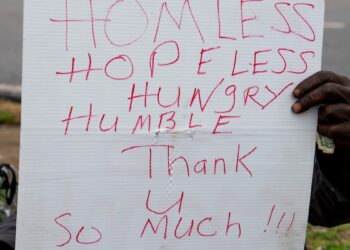 HOMLESS
HOPELESS
HUNGRY
HUMBLE
Thank
U
So Much !!!